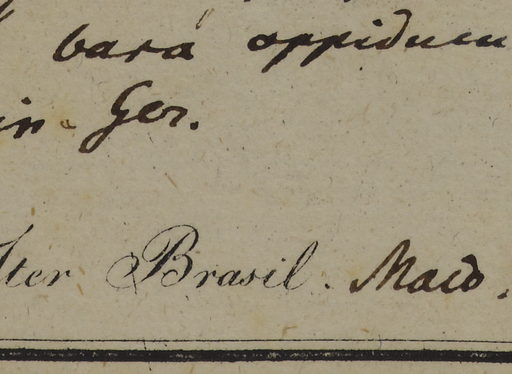 bara oppidum
in Ger.
Iter Brasil. Maio.